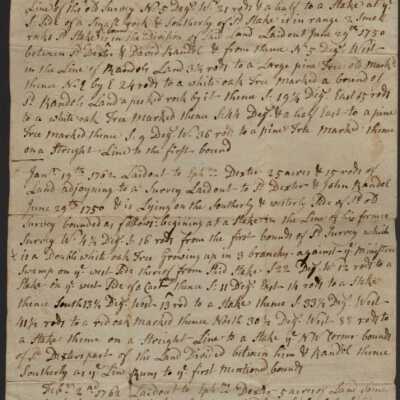 Line of the old Survey N 5 Degs W 21 rods & a half to a Stake at ye
S. Side of a Small rock & Southerly of sd Stake is in range 2 Small
rocks sd Stake is bound in the Division of this Land Laidout June 29th 1750
between sd Dexter & David Randol & from thence N. 5 Degs West
in the Line of Randols Land 34 rods to a Large pine Tree old markt
thence No 24 rods to a white oak Tree marked a bound of
sd Randols Land a pecked rock by it thence S. 19¼ Degs East 15 rods
to a white oak Tree marked thence S. Degs & a half East to a pine
Tree Marked thence S. 9 Degs W. 36 rods to a pine Tree Marked thence
on a Streight Line to the first bound
Janr 19th 1762 Laidout to Dexter 25 acres & 15 rods of
Land adjoyning to a Survey Laidout to sd Dexter & John Randol
June 29th 1750 & is Lying on the Southerly & westerly Side of sd old
Survey bounded as follows begining at a Stake in the Line of his former
Survey W. 4¼ Degs S. 16 rods from the first bounds of sd Survey which
is a Double white oak Tree Growing up in 3 branches against ye
Swamp on ye west Side thereof from Said Stake S 22 Degs W 12 rods to a
Stake on ye west Side of a thence S. 11 Degs East 14 rods to a Stake
thence South 13¼ Degs West 13 rod to a Stake thence S. 33¼ Degs West
41½ rods to a red oak Marked thence North 30½ Degs West 88 rods to
a Stake thence on a Streight Line to a Stake ye N W Corner bounds
of sd Dexters part of the Land Divided between him & Randol thence
Southerly as ye Line Runs to ye first mentioned bounds
Febr 2nd 1762 Laidout to Dexter 5 acres of Land